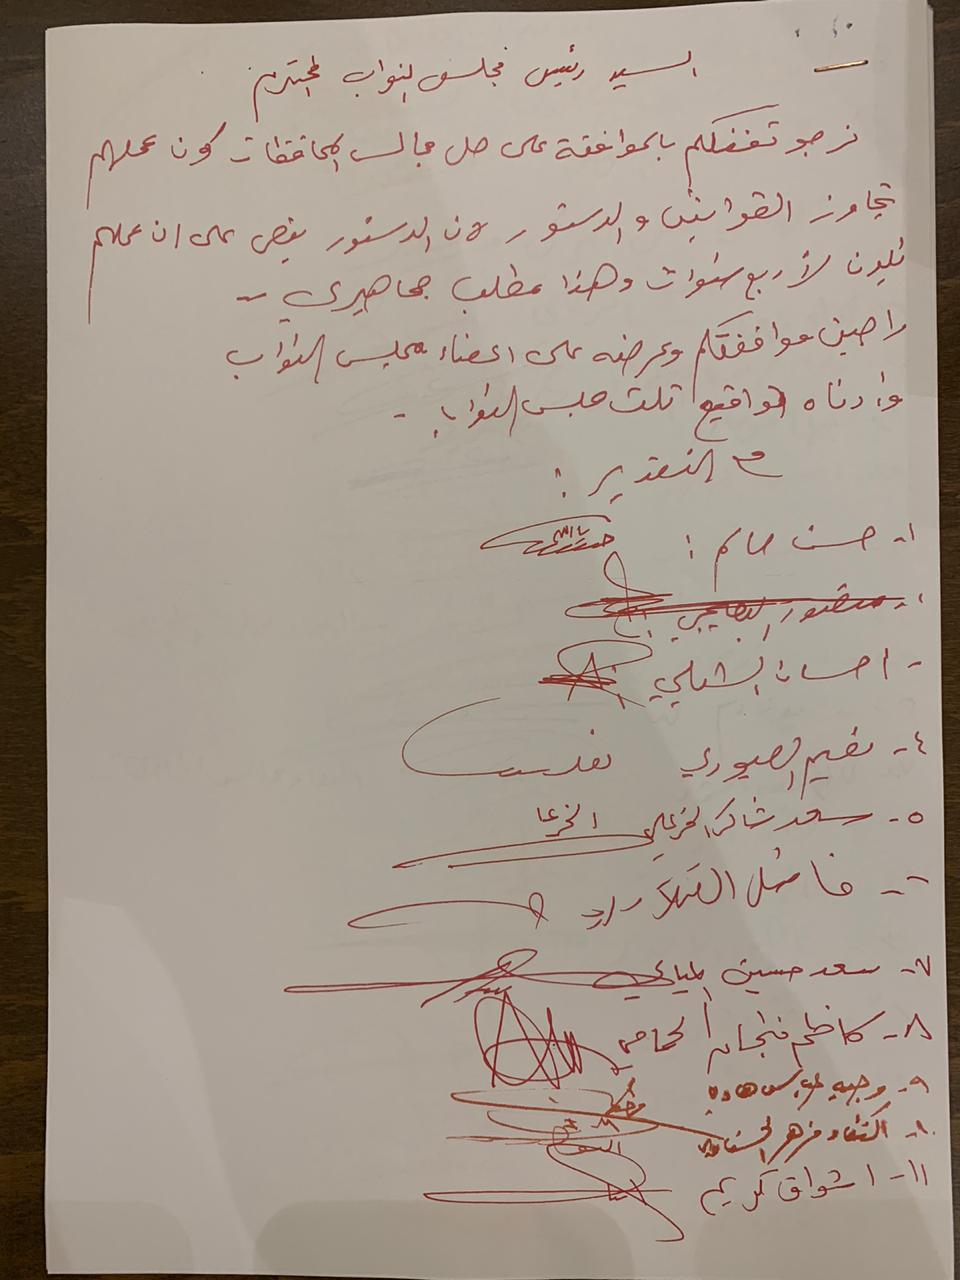 السيد رئيس مجلس النواب المحترم
نرجو تفضلكم بالموافقة على حل مجالس المحافظات كون عملهم
تجاوز القوانين والدستور لان الدستور ينص على ان عملهم
يكون لأربع سنوات وهذا مطلب جماهيري -
راجين موافقتكم وعرضه على اعضاء مجلس النواب
وادناه تواقيع ثلث مجلس النواب -
مع التقدير :
١- حسن سالم :
منصور البعيجي
- احسان الشبلي
٤- نعيم العبودي
٥- سعد شاكر الخزعلي الخزعا
٦- فاضل الفتلاوي
٧- سعد حسين
٨- كاظم فنجان الحمامي
٩- وجيه عباس هادي
١٠- اكتفاء مزهر الحسناوي
١١- اشواق كريم